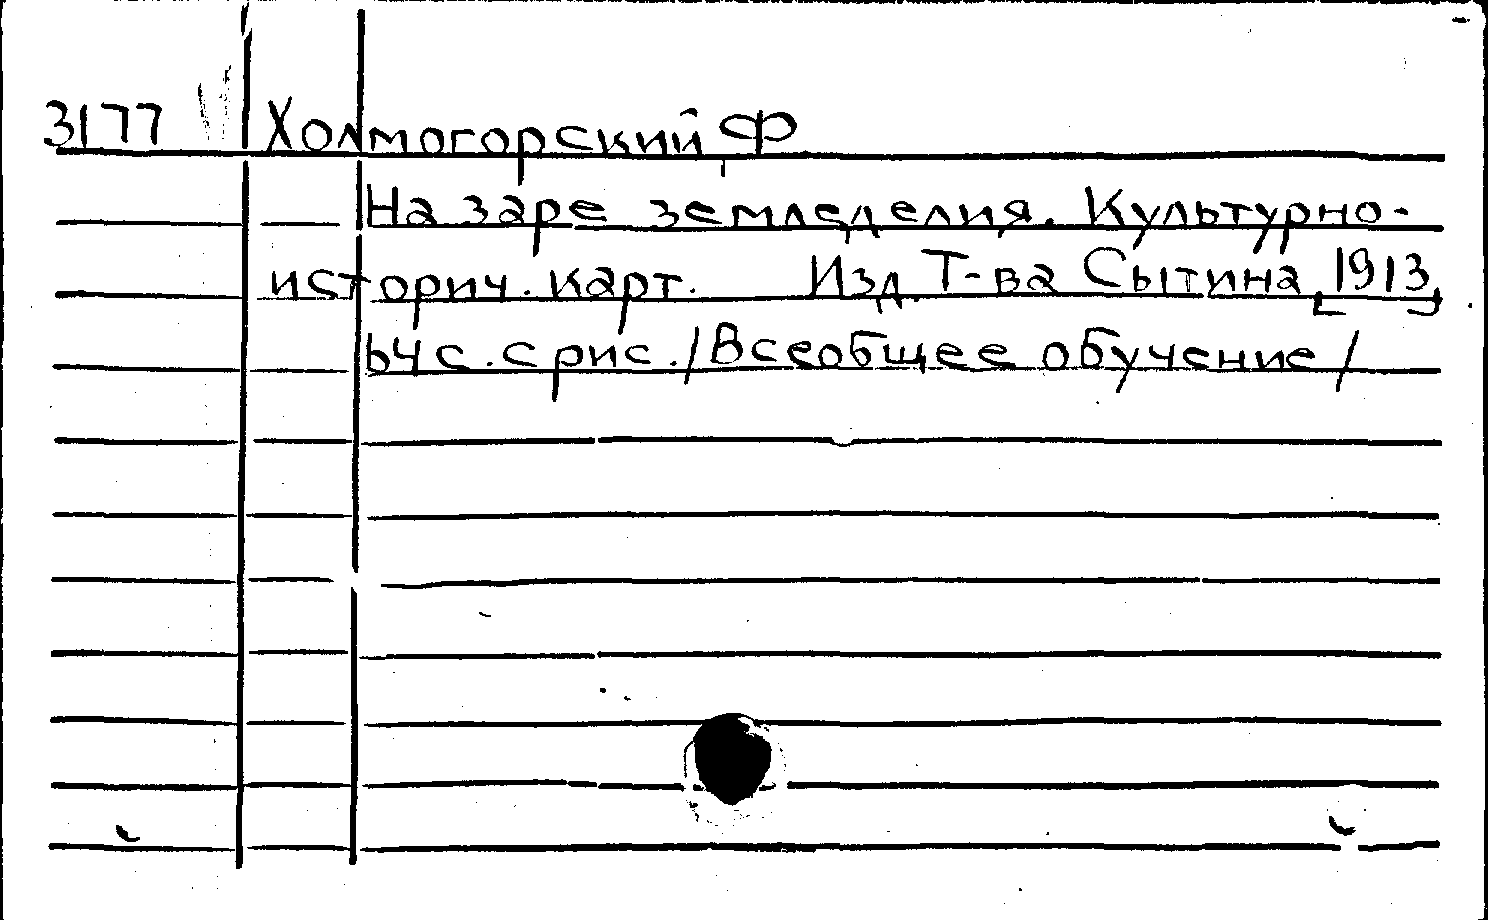 3177 Холмогорский, Ф
На заре земледелия. Культурно-
историч. карт. Изд. Т-ва Сытина [1913]
64 с. с рис. /Всеобщее обучение/